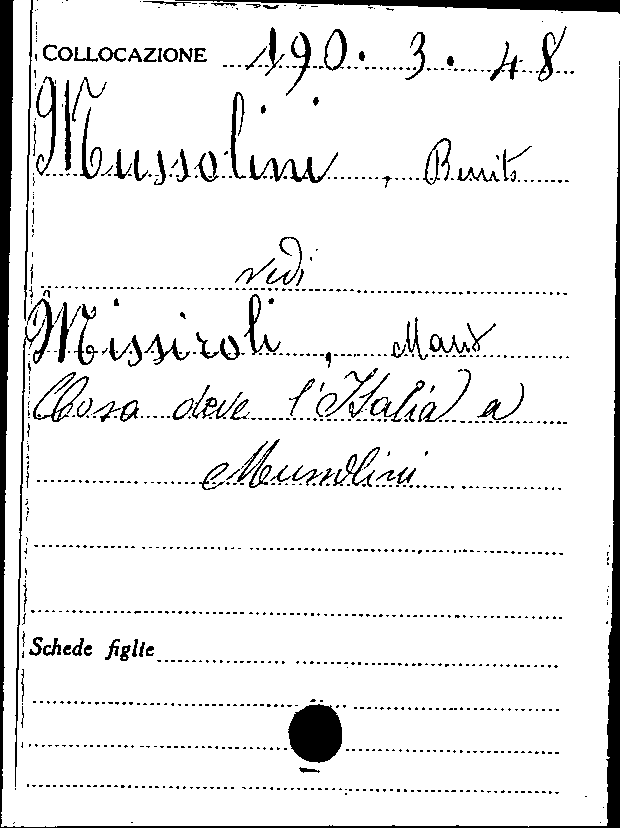 COLLOCAZIONE 190. 3. 48
Mussolini, Benito
vedi
Missiroli, Mario
Cosa deve l'Italia a
Mussolini
Schede figlie